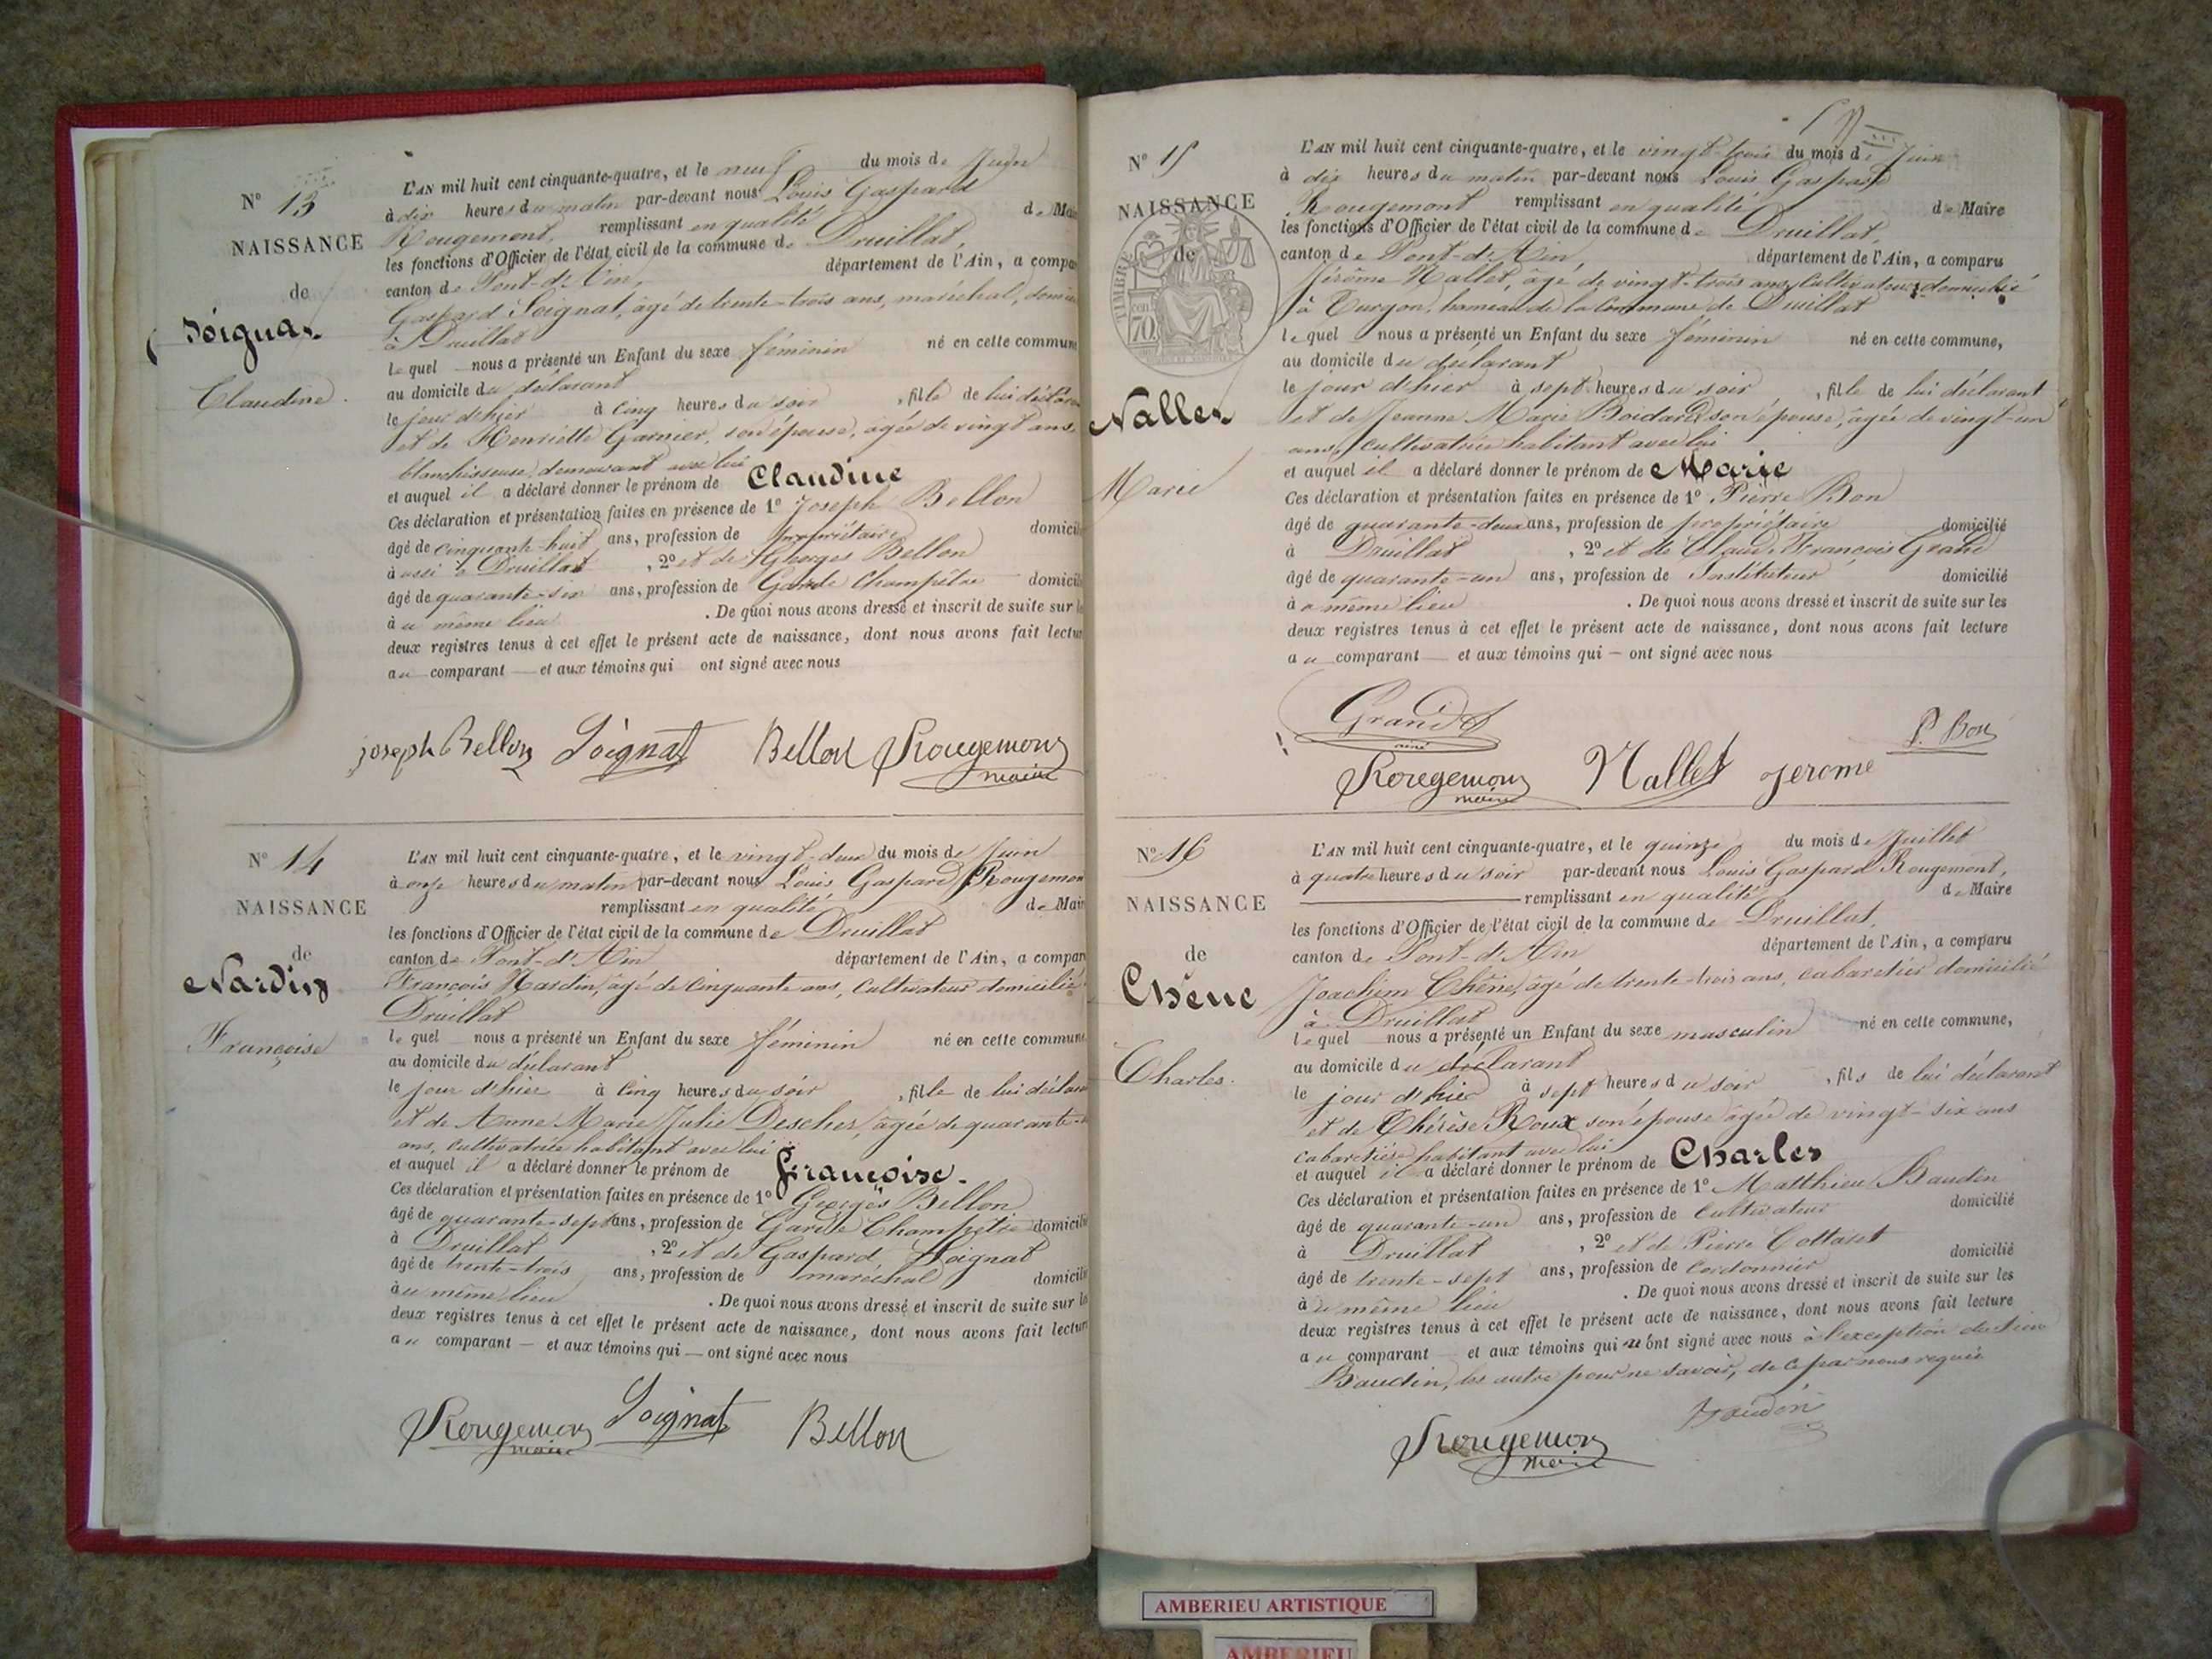 N° 13
NAISSANCE
de
Soignat
Claudine.
L'AN mil huit cent cinquante-quatre, et le neuf du mois de Juin
à dix heures du matin par-devant nous Louis Gaspard
Rougemont, remplissant en qualité de Mai
les fonctions d'Officier de l'état civil de la commune de Druillat,
canton de Pont-d'Ain, département de l'Ain, a compa
Gaspard Soignat, âgé de trente-trois ans, maréchal, domi
à Druillat
lequel nous a présenté un Enfant du sexe féminin né en cette commune
au domicile du déclarant
le jour d'hier à cinq heures du soir , fille de lui déclara
et de Henriette Garnier, son épouse, âgée de vingt ans,
blanchisseuse, demeurant avec lui
et auquel il a déclaré donner le prénom de Claudine
Ces déclaration et présentation faites en présence de 1° Joseph Bellon
âgé de cinquante-huit ans, profession de propriétaire domicil
à Druillat , 2° et de Georges Bellon
âgé de quarante-six ans, profession de Garde Champêtre domicili
au même lieu . De quoi nous avons dressé et inscrit de suite sur l
deux registres tenus à cet effet le présent acte de naissance, dont nous avons fait lectur
au comparant — et aux témoins qui ont signé avec nous
joseph Bellon Soignat Bellon Rougemont
maire
N° 14
NAISSANCE
de
Nardin
Françoise
L'AN mil huit cent cinquante-quatre, et le vingt-deux du mois de Juin
à onze heures du matin par-devant nous Louis Gaspard Rougemon
remplissant en qualité de Mair
les fonctions d'Officier de l'état civil de la commune de Druillat
canton de Pont-d'Ain département de l'Ain, a compar
François Nardin, âgé de cinquante ans, Cultivateur domicilié
Druillat
lequel nous a présenté un Enfant du sexe féminin né en cette commune
au domicile du déclarant
le jour d'hier à cinq heures du soir , fille de lui déclara
et de Anne Marie Julie Descher, âgée de quarante-
ans, cultivatrice habitant avec lui
et auquel il a déclaré donner le prénom de Françoise.
Ces déclaration et présentation faites en présence de 1° Georges Bellon
âgé de quarante-sept ans, profession de Garde Champêtre domicili
à Druillat , 2° et de Gaspard Soignat
âgé de trente-trois ans, profession de maréchal domicili
au même lieu . De quoi nous avons dressé et inscrit de suite sur le
deux registres tenus à cet effet le présent acte de naissance, dont nous avons fait lectur
au comparant — et aux témoins qui — ont signé avec nous
Rougemont Soignat Bellon
maire
N° 15
NAISSANCE
de
TIMBRE
70
Nallet
Marie
L'AN mil huit cent cinquante-quatre, et le vingt-trois du mois de Juin
à dix heures du matin par-devant nous Louis Gaspard
Rougemont remplissant en qualité de Maire
les fonctions d'Officier de l'état civil de la commune de Druillat,
canton de Pont-d'Ain, département de l'Ain, a comparu
Jérôme Nallet, âgé de vingt-trois ans, Cultivateur, domicilié
à Turgon, hameau de la Commune de Druillat
lequel nous a présenté un Enfant du sexe féminin né en cette commune,
au domicile du déclarant
le jour d'hier à sept heures du soir , fille de lui déclarant
et de Jeanne Marie Boidard, son épouse, âgée de vingt-un
ans, cultivatrice habitant avec lui
et auquel il a déclaré donner le prénom de Marie
Ces déclaration et présentation faites en présence de 1° Pierre Bon
âgé de quarante-deux ans, profession de propriétaire domicilié
à Druillat , 2° et de Claude François Grand
âgé de quarante-un ans, profession de Instituteur domicilié
au même lieu . De quoi nous avons dressé et inscrit de suite sur les
deux registres tenus à cet effet le présent acte de naissance, dont nous avons fait lecture
au comparant — et aux témoins qui — ont signé avec nous
Grand P. Bon
aîné
Rougemont Nallet jerome
maire
N° 16
NAISSANCE
de
Chêne
Charles.
L'AN mil huit cent cinquante-quatre, et le quinze du mois de Juillet
à quatre heures du soir par-devant nous Louis Gaspard Rougemont,
remplissant en qualité de Maire
les fonctions d'Officier de l'état civil de la commune de Druillat,
canton de Pont-d'Ain département de l'Ain, a comparu
Joachim Chêne, âgé de trente-trois ans, cabaretier domicilié
à Druillat
lequel nous a présenté un Enfant du sexe masculin né en cette commune,
au domicile du déclarant
le jour d'hier à sept heures du soir , fils de lui déclarant
et de Thérèse Roux son épouse âgée de vingt-six ans
cabaretière habitant avec lui
et auquel il a déclaré donner le prénom de Charles
Ces déclaration et présentation faites en présence de 1° Matthieu Baudin
âgé de quarante-un ans, profession de Cultivateur domicilié
à Druillat , 2° et de Pierre Cottaret
âgé de trente-sept ans, profession de Cordonnier domicilié
au même lieu . De quoi nous avons dressé et inscrit de suite sur les
deux registres tenus à cet effet le présent acte de naissance, dont nous avons fait lecture
au comparant et aux témoins qui n'ont signé avec nous à l'exception de
Baudin, les autre pour ne savoir, de ce par nous requis
Baudin
Rougemont
maire
AMBERIEU ARTISTIQUE
AMBERIEU